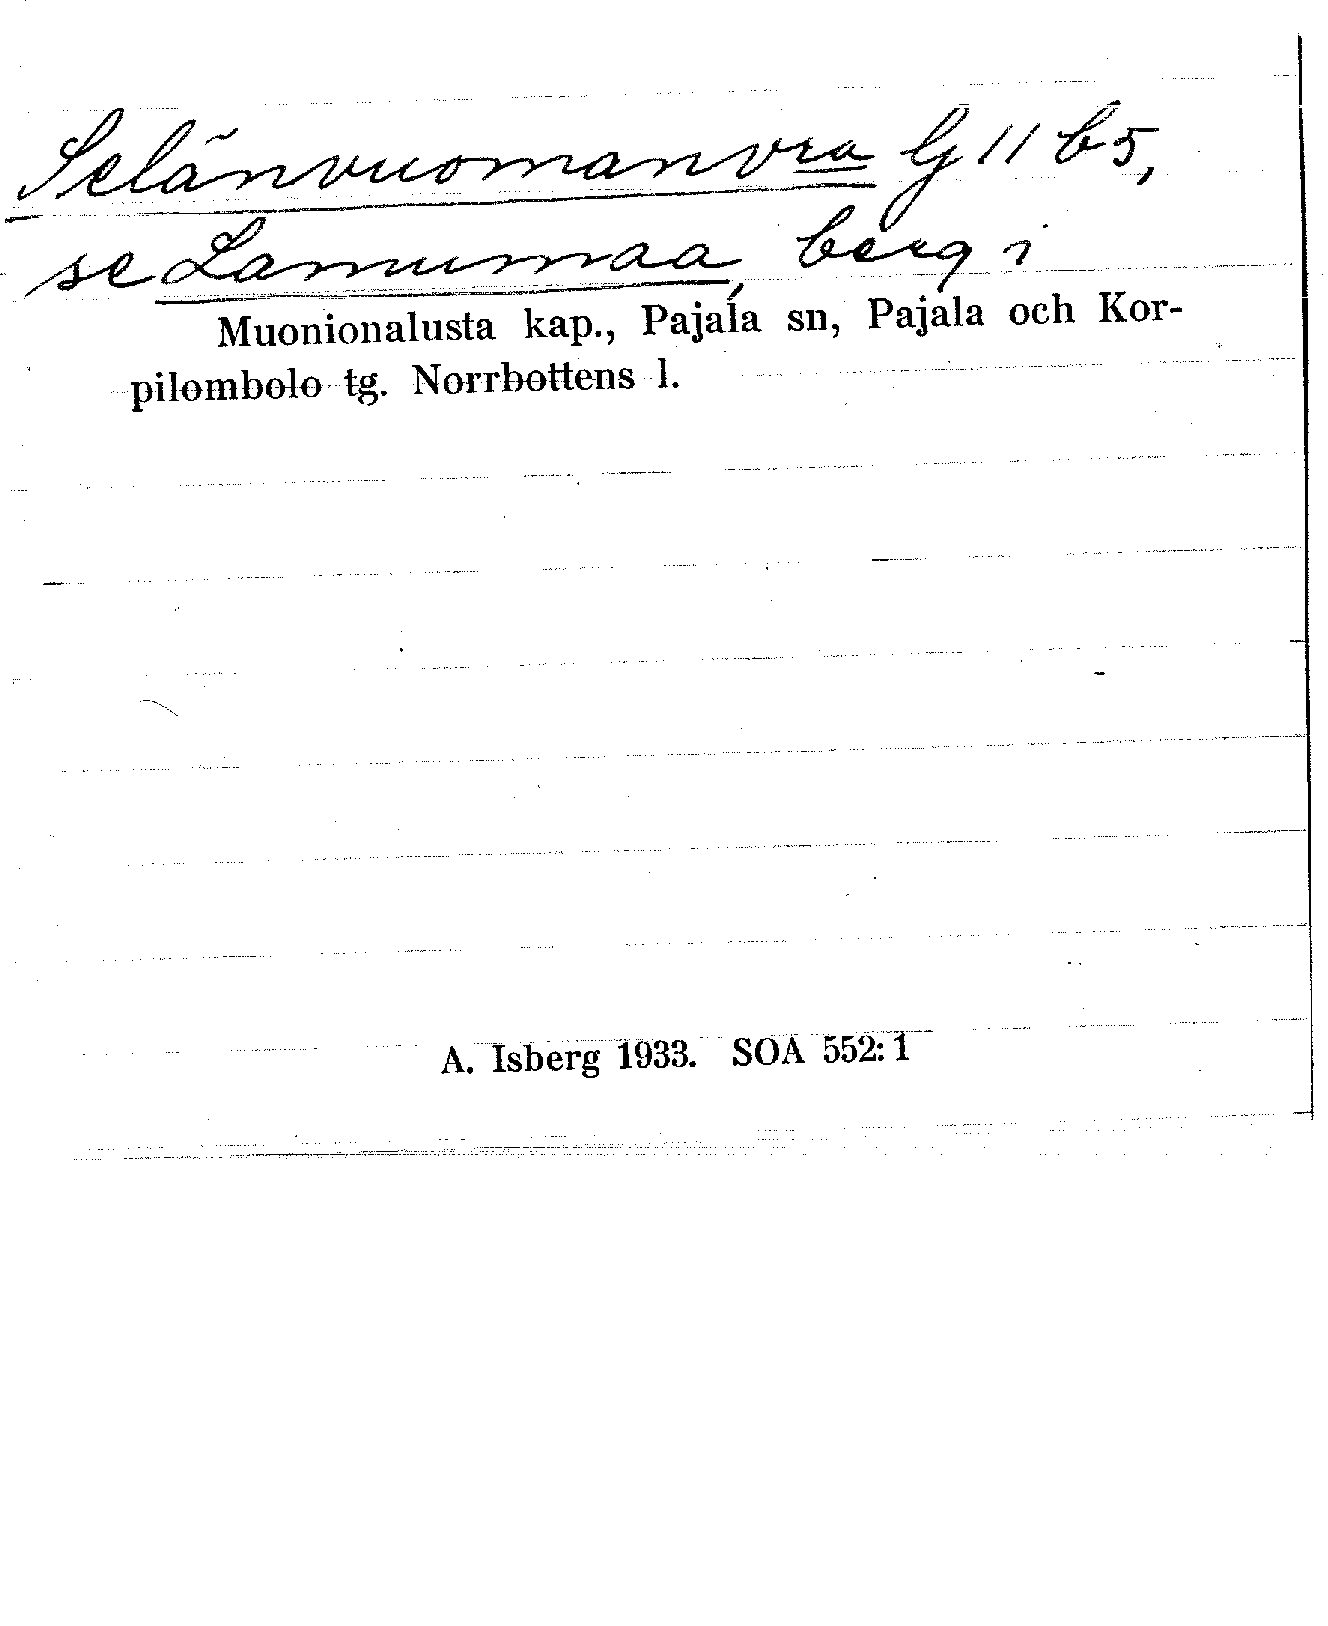 Selänvuomanvra G 11 b5,
se Lamumaa, berg i
Muonionalusta kap., Pajala sn, Pajala och Kor-
pilombolo tg. Norrbottens l.
A. Isberg 1933. SOA 552: 1